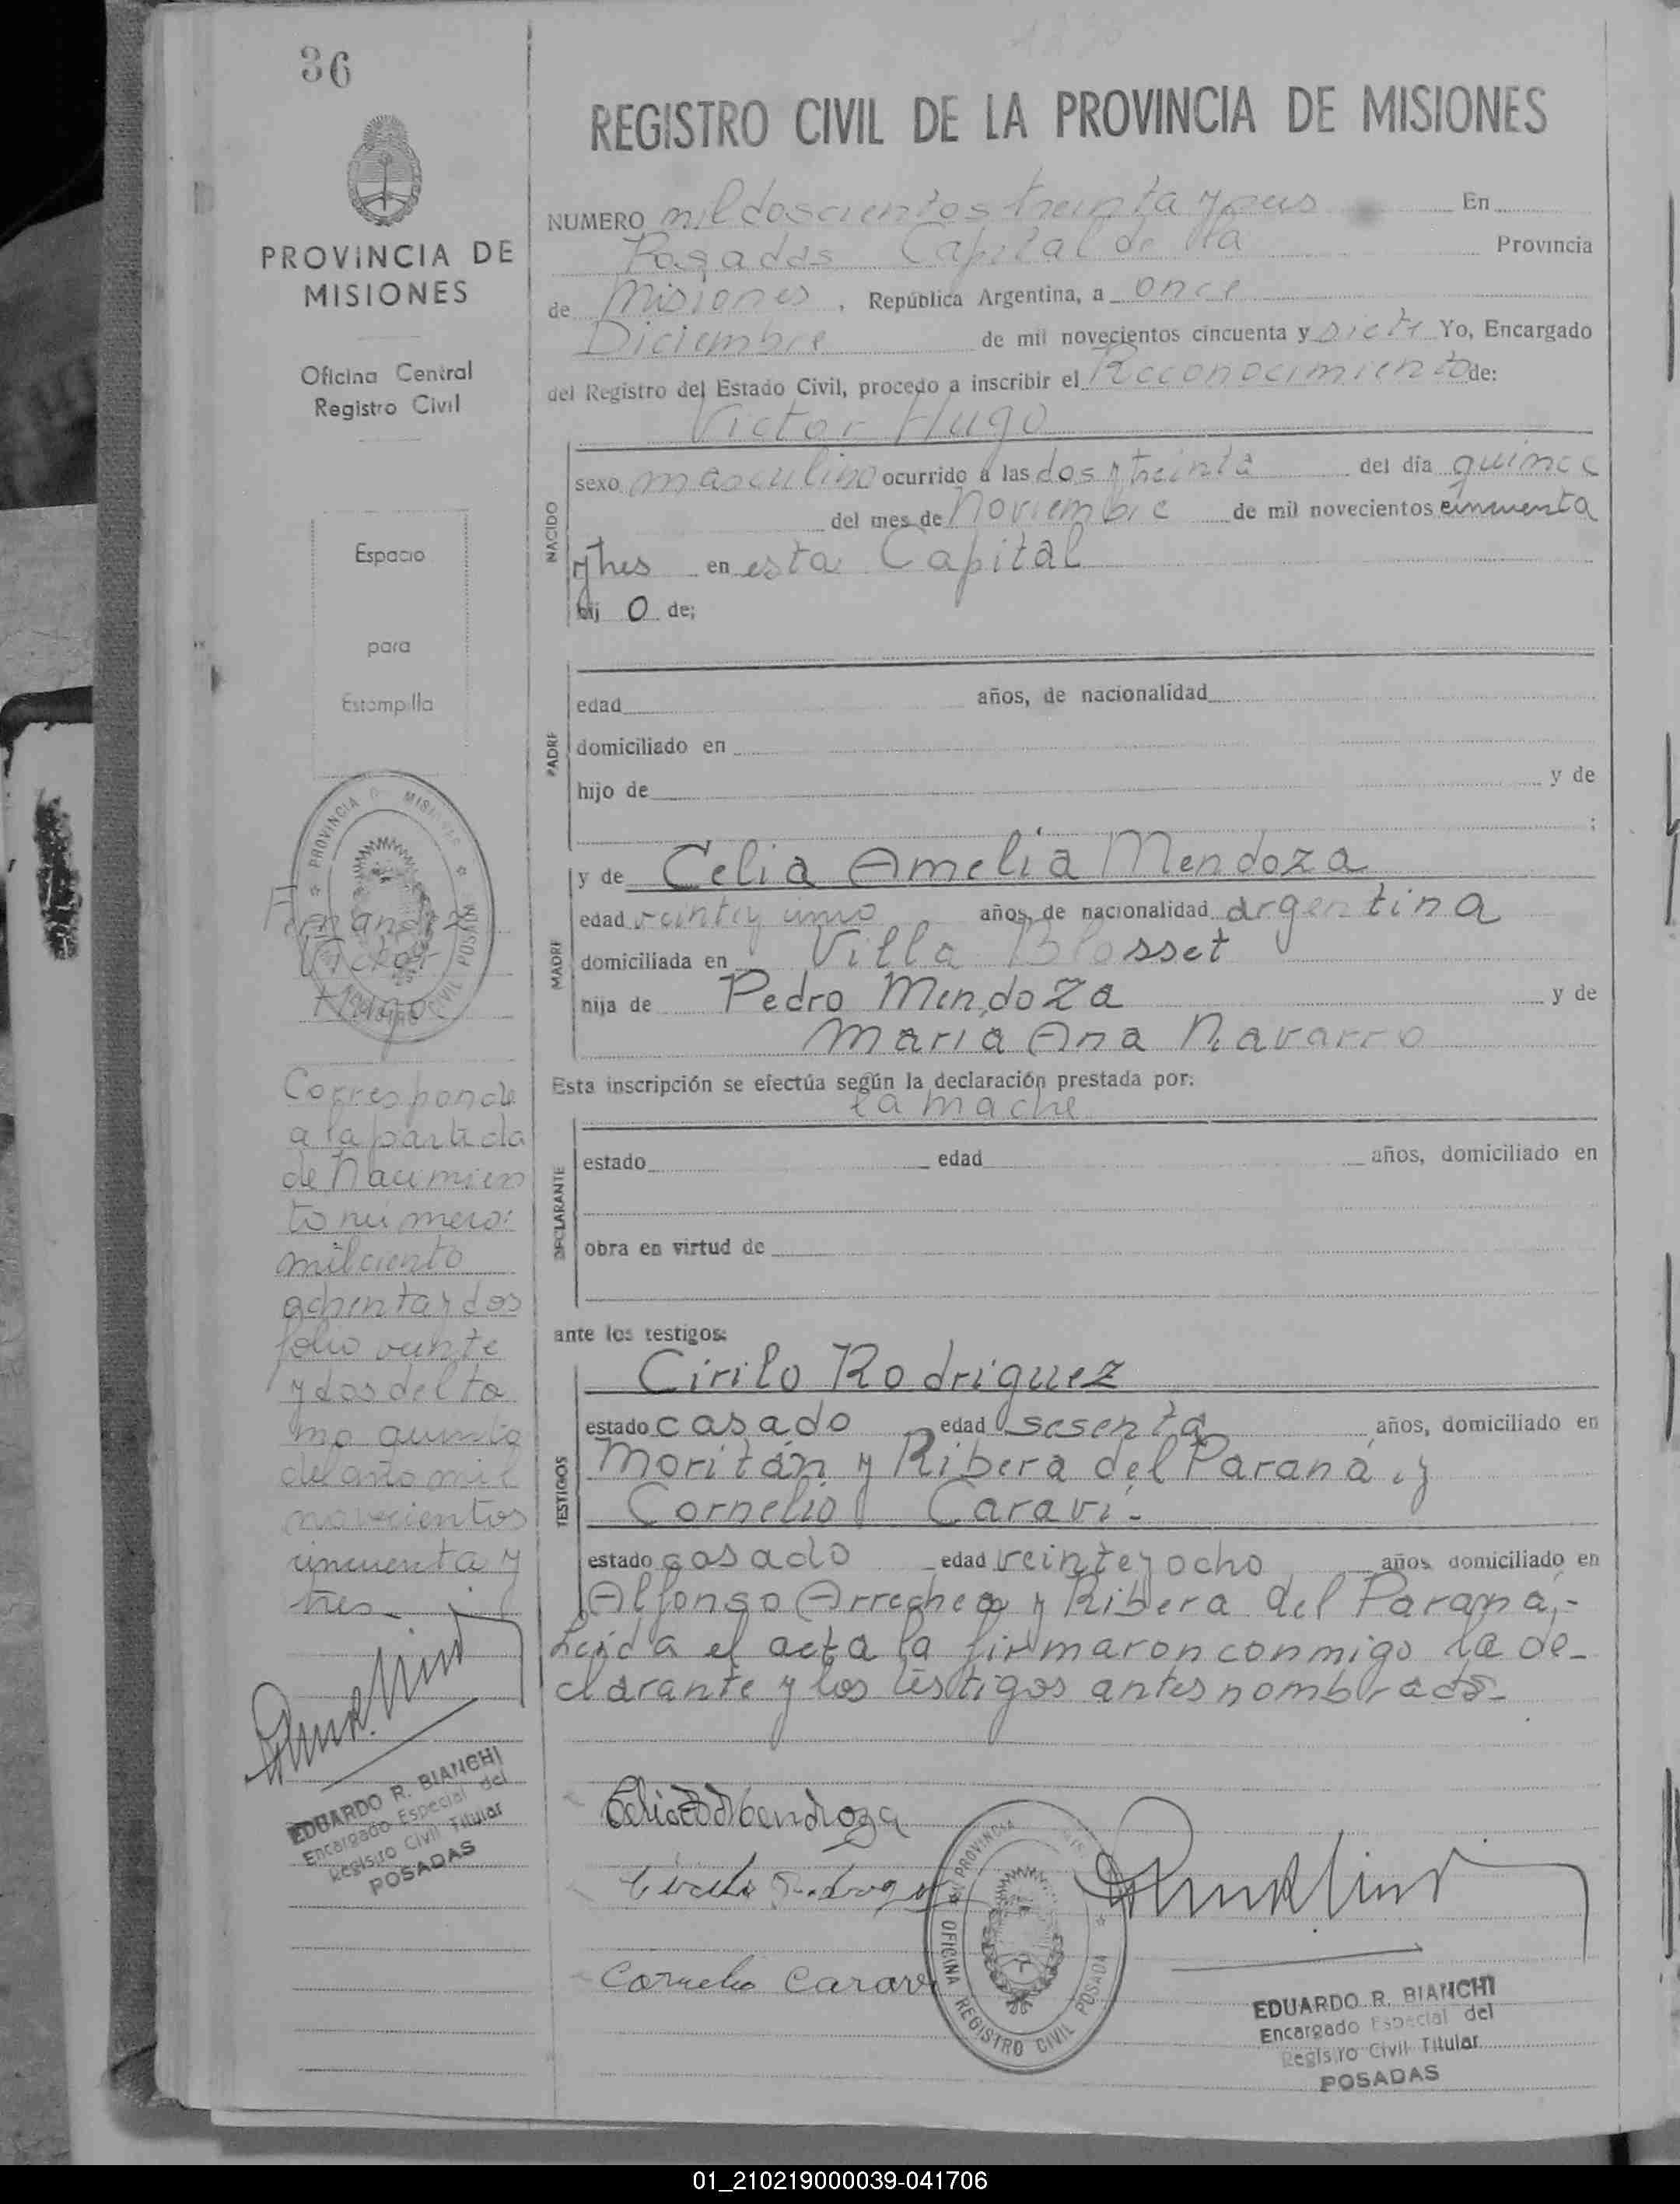 36
REGISTRO CIVIL DE LA PROVINCIA DE MISIONES
PROVINCIA DE
MISIONES
Oficina Central
Registro Civil
Espacio
para
Estampilla
NUMERO mil doscientos treinta y seis En
Posadas Capital de la Provincia
de Misiones, República Argentina, a once
Diciembre de mil novecientos cincuenta y siete Yo, Encargado
del Registro del Estado Civil, procedo a inscribir el Reconocimiento de:
Victor Hugo
NACIDO
sexo masculino ocurrido a las dos y treinta del día quince
del mes de Noviembre de mil novecientos cincuenta
y tres en esta Capital
hij o de;
PADRE
edad años, de nacionalidad
domiciliado en
hijo de y de
;
MADRE
y de Celia Amelia Mendoza
edad veinte y uno años, de nacionalidad argentina
domiciliada en Villa Blosset
hija de Pedro Mendoza y de
Maria Ana Navarro
Esta inscripción se efectúa según la declaración prestada por:
la madre
DECLARANTE
estado edad años, domiciliado en
obra en virtud de
ante los testigos:
TESTIGOS
Cirilo Rodriguez
estado casado edad sesenta años, domiciliado en
Moritán y Ribera del Paraná, y
Cornelio Caravi.-
estado casado edad veinte y ocho años domiciliado en
Alfonso Arrechea y Ribera del Paraná,-
Leída el acta la firmaron conmigo la de-
clarante y los testigos antes nombrados-
PROVINCIA D MISIONES
REGISTRO CIVIL POSADAS
Fernandez
Victor
Hugo
Corresponde
a la partida
de Nacimien
to número:
mil ciento
ochenta y dos
folio veinte
y dos del to
mo quinto
del año mil
novecientos
cincuenta y
tres-
EDUARDO R. BIANCHI
Encargado Especial del
Registro Civil Titular
POSADAS
Celia A Mendoza
Cirilo Rodriguez
Cornelio Caravi
PROVINCIA MIS
OFICINA REGISTRO CIVIL POSADA
EDUARDO R. BIANCHI
Encargado Especial del
Registro Civil Titular
POSADAS
01_210219000039-041706